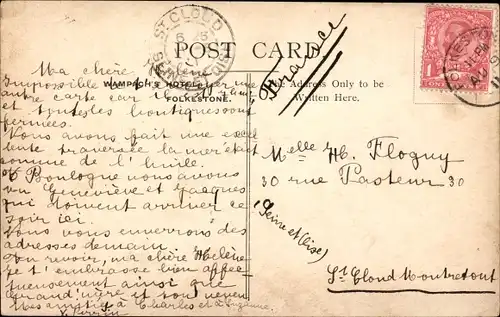 POST CARD
WAMPACH'S HOTEL
FOLKESTONE.
The Address Only to be
Written Here.
France
ST CLOUD
FOLKESTONE
Ma chère Hélène
Impossible
autre carte car
et toutes les boutiques sont
fermées.
Nous avons fait une excel
lente traversée la mer était
comme de l'huile.
A Boulogne nous avons
vu Geneviève et Jacques
qui doivent arriver ce
soir ici.
Nous vous enverrons des
adresses demain.
Au revoir, ma chère Hélène
je t'embrasse bien affec
tueusement ainsi que
grand'mère et ton
Mes amitiés à Charles et à Suzanne.
Melle H. Floguy
30 rue Pasteur 30
(Seine et Oise)
St Cloud Montretout